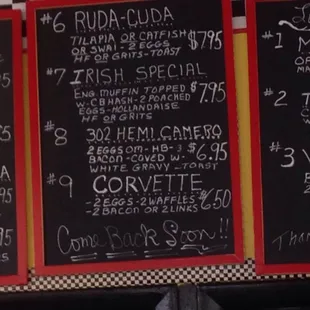 #6 RUDA-CUDA
TILAPIA OR CATFISH
OR SWAI - 2 EGGS
HF OR GRITS-TOAST
$7.95
#7 IRISH SPECIAL
ENG MUFFIN TOPPED
W-CB HASH-2 POACHED
EGGS-HOLLANDAISE
HF OR GRITS
$7.95
#8 302 HEMI CAMERO
2 EGGS OM-HB-3
BACON-COVED W.
WHITE GRAVY-TOAST
$6.95
#9 CORVETTE
-2 EGGS-2 WAFFLES
-2 BACON OR 2 LINKS
$6.50
Come Back Soon!!
#1
#2
#3